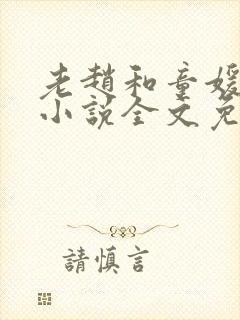 老趙和童媛
小說全文免
請慎言